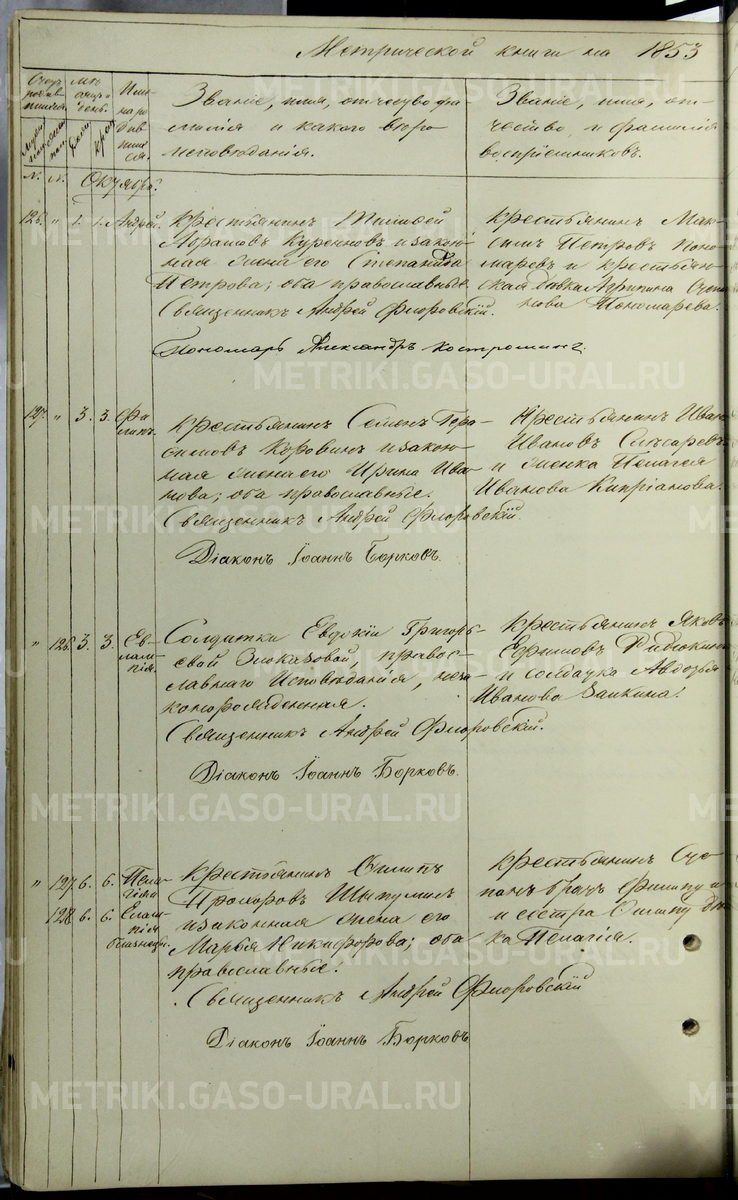 Метрической книги на 1853
Счетъ родив шихся.
Мѣ сяцъ и день.
Име на ро див ших ся.
Званіе, имя, отчество фа-
милія и какого вѣро
исповѣданія.
Званіе, имя, от-
чество, и фамилія
воспріемниковъ.
№. №. Октябрь.
126. " 1. 1. Андрей.
Крестьянинъ
Абрамовъ Куренновъ и закон-
ная жена его Степанида
Петрова; оба православные.
Священникъ Андрей Флоровскій.
Пономарь Александръ Костроминъ.
Крестьянинъ Мак-
симъ Петровъ Поно-
маревъ и крестьян-
ская дѣвка Агрипина
Пономарева.
127. " 3. 3. Фи-
липъ.
Крестьянинъ Семенъ Гера-
симовъ Коровинъ и закон-
ная жена его Ирина Ива-
нова; оба православные.
Священникъ Андрей Флоровскій.
Діаконъ Іоаннъ Борковъ.
Крестьянинъ Иванъ
Ивановъ Слѣсаревъ
и женка Пелагея
Иванова Кипріанова.
" 126. 3. 3. Ев-
лам-
пія.
Солдатки Евдокіи Григорь-
евой Злоказовой, правос-
лавнаго исповѣданія, неза-
конорожденная.
Священникъ Андрей Флоровскій.
Діаконъ Іоаннъ Борковъ.
Крестьянинъ Яковъ
Ефимовъ
и солдачка Авдотья
Иванова Заикина.
" 127. 6. 6. Пела-
гія и
128. 6. 6. Евлам-
пія
близнецы.
Крестьянинъ Филипъ
Прохоровъ
и законная жена его
Марья Никифорова; оба
православные.
Священникъ Андрей Флоровскій
Діаконъ Іоаннъ Борковъ
Крестьянинъ Сте-
панъ братъ Филипу
и сестра Филипу дѣв-
ка Пелагія.
METRIKI.GASO-URAL.RU